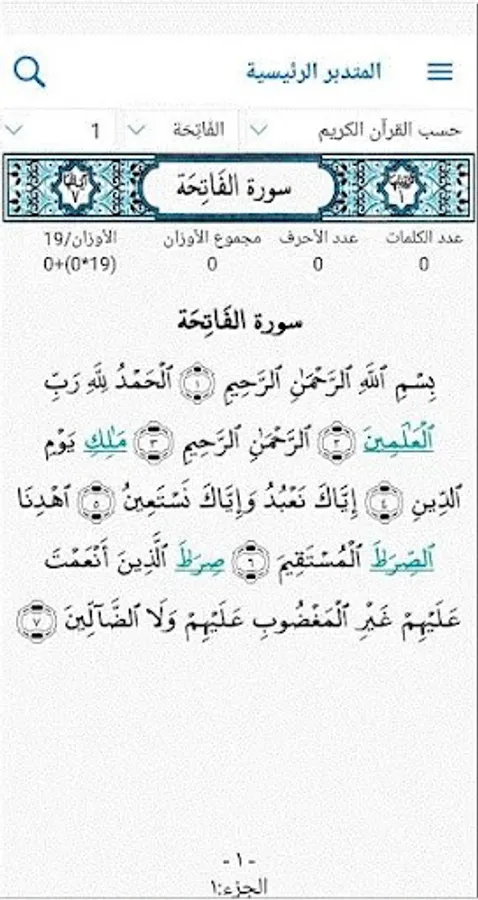 المتدبر الرئيسية
حسب القرآن الكريم الفَاتِحَة 1
سورة الفَاتِحَة ٧ ١
عدد الكلمات عدد الأحرف مجموع الأوزان الأوزان/19
0 0 0 0+(0*19)
سورة الفَاتِحَة
بِسْمِ ٱللَّهِ ٱلرَّحْمَٰنِ ٱلرَّحِيمِ ١ ٱلْحَمْدُ لِلَّهِ رَبِّ
ٱلْعَٰلَمِينَ ٢ ٱلرَّحْمَٰنِ ٱلرَّحِيمِ ٣ مَٰلِكِ يَوْمِ
ٱلدِّينِ ٤ إِيَّاكَ نَعْبُدُ وَإِيَّاكَ نَسْتَعِينُ ٥ ٱهْدِنَا
ٱلصِّرَٰطَ ٱلْمُسْتَقِيمَ ٦ صِرَٰطَ ٱلَّذِينَ أَنْعَمْتَ
عَلَيْهِمْ غَيْرِ ٱلْمَغْضُوبِ عَلَيْهِمْ وَلَا ٱلضَّآلِّينَ ٧
- ١ -
الجزء:١